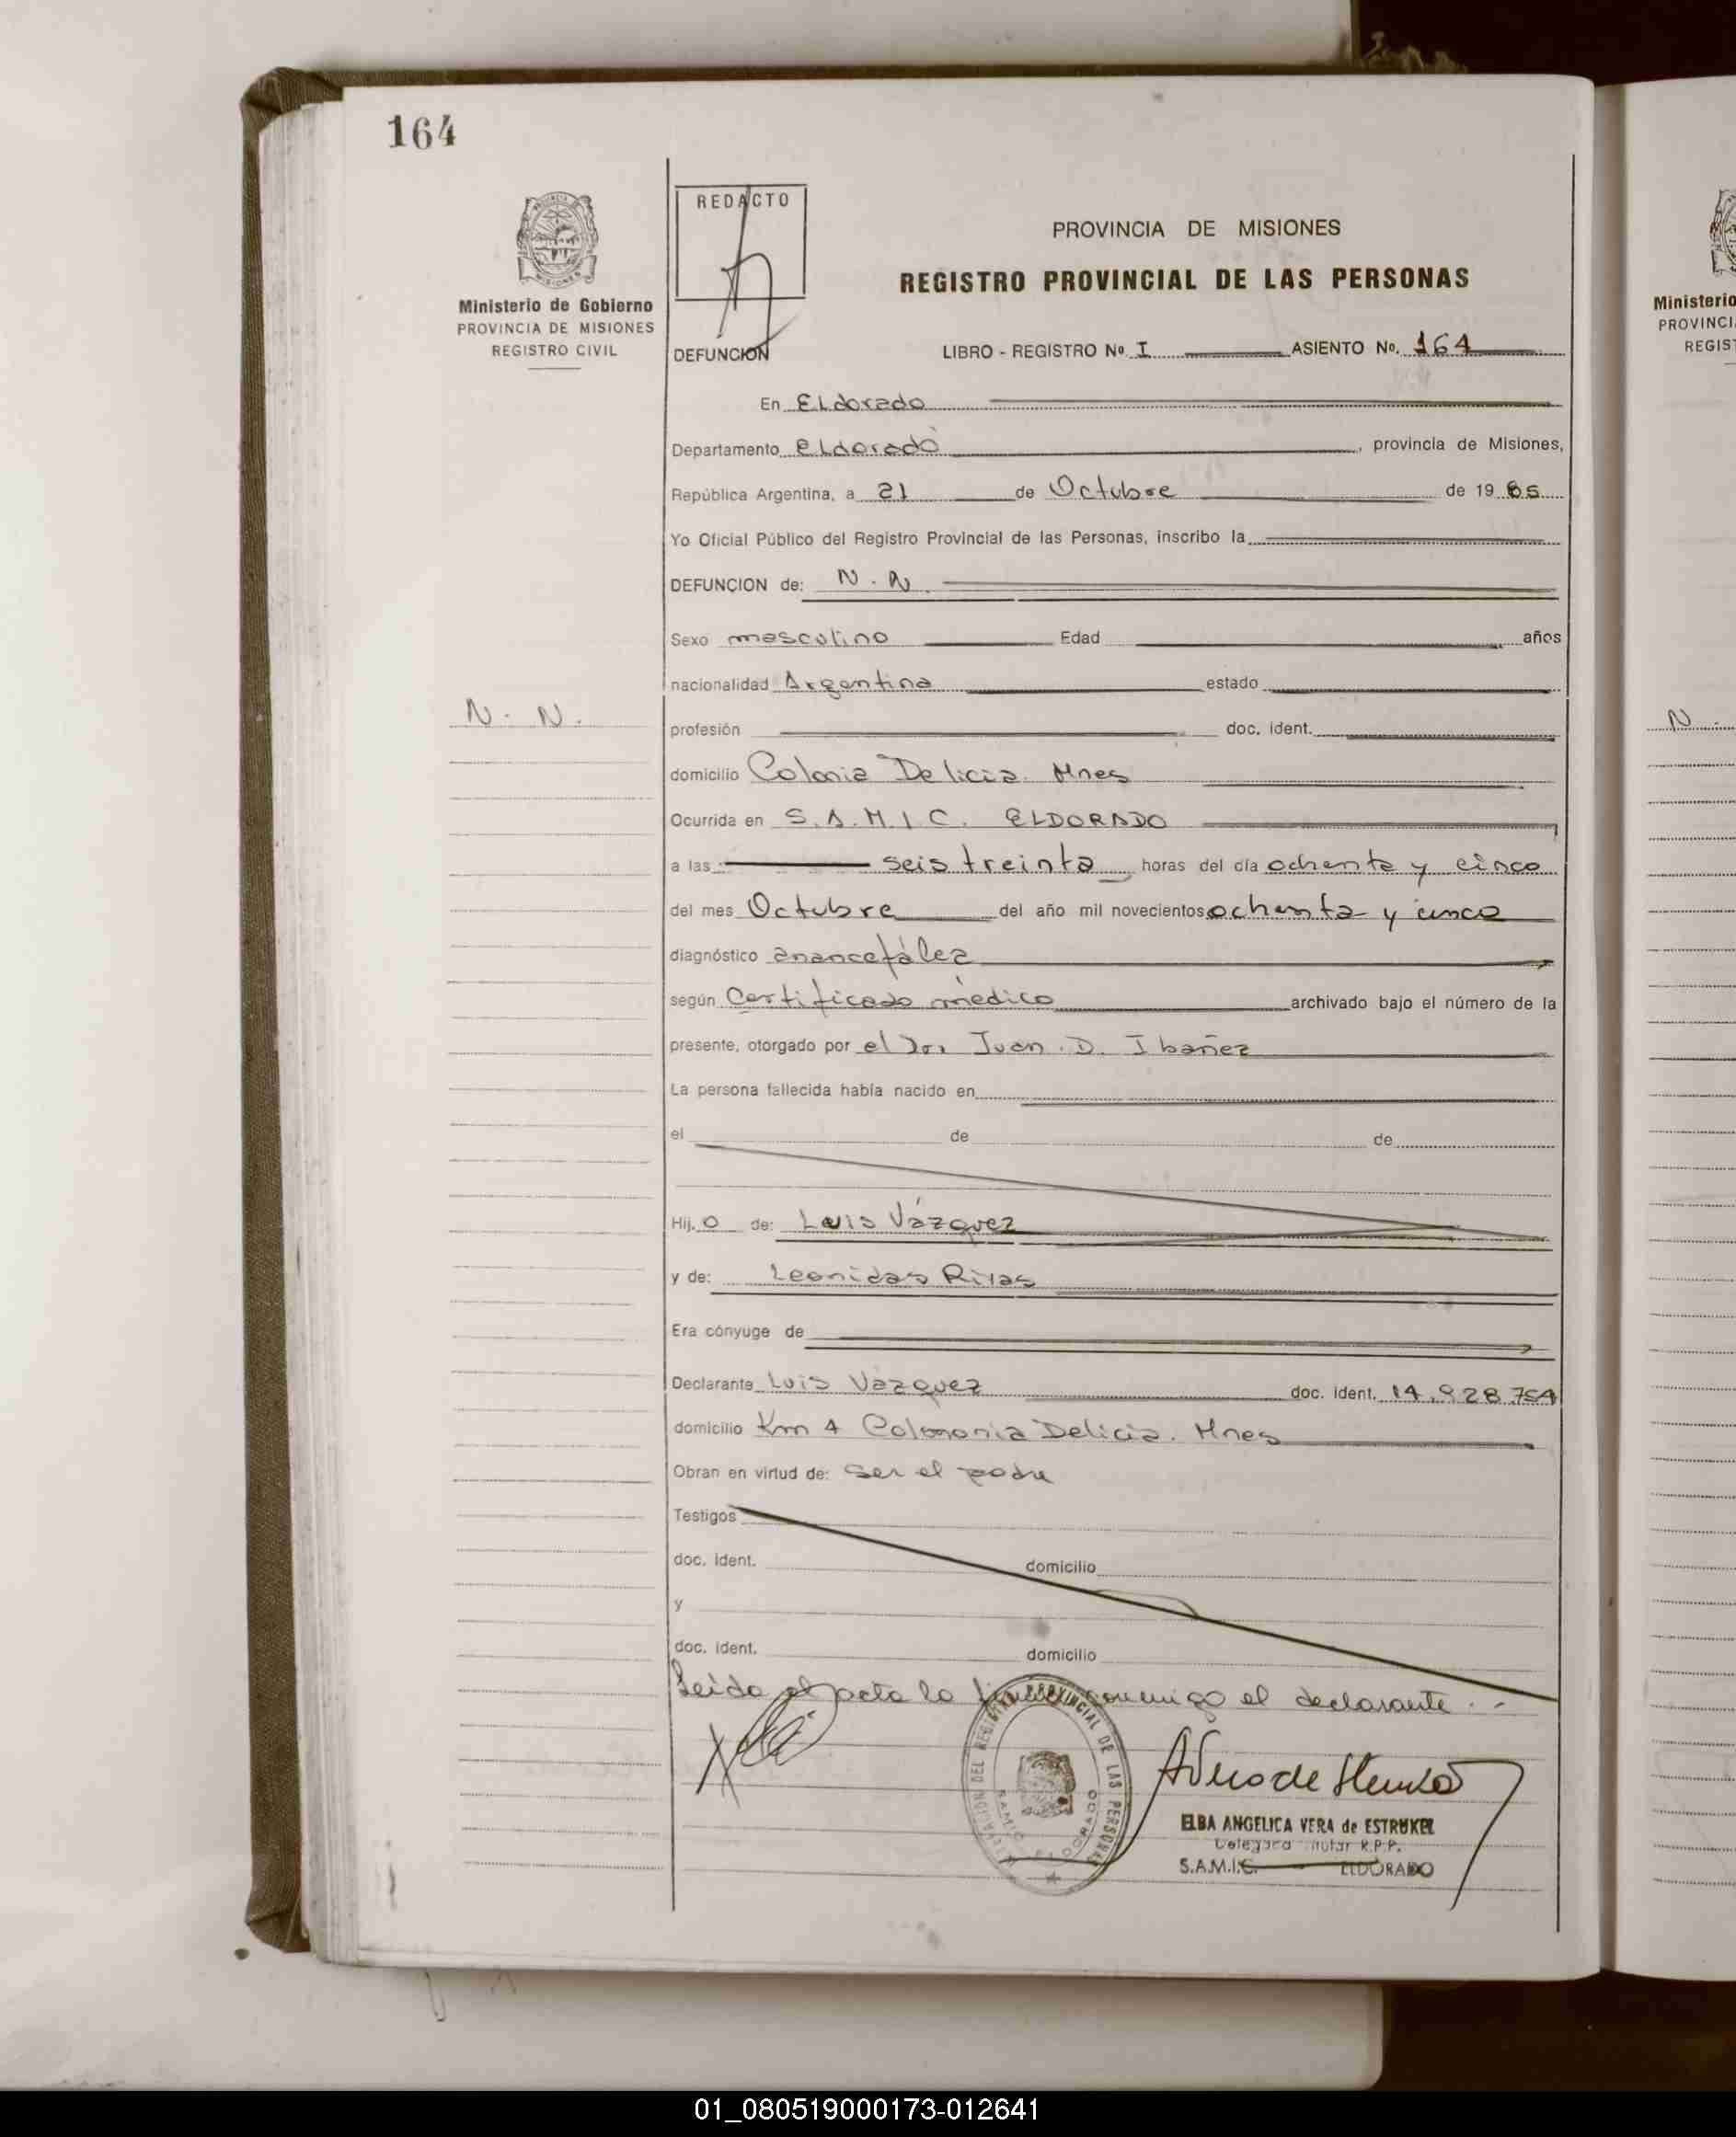 164
Ministerio de Gobierno
PROVINCIA DE MISIONES
REGISTRO CIVIL
REDACTO
PROVINCIA DE MISIONES
REGISTRO PROVINCIAL DE LAS PERSONAS
DEFUNCION LIBRO - REGISTRO Nº I ASIENTO Nº. 164
En ELdorado
Departamento eLdorado, provincia de Misiones,
República Argentina, a 21 de Octubre de 19 85
Yo Oficial Público del Registro Provincial de las Personas, inscribo la
DEFUNCION de: N. N.
Sexo masculino Edad años
nacionalidad Argentina estado
N. N.
profesión doc. ident.
domicilio Colonia Delicia. Mnes
Ocurrida en S.A.M.I.C. ELDORADO
a las seis treinta horas del día ochenta y cinco
del mes Octubre del año mil novecientos ochenta y cinco
diagnóstico anancefález
según Certificado médico archivado bajo el número de la
presente, otorgado por el Dr. Juan. D. Ibañez
La persona fallecida había nacido en
el de de
Hij o de: Luis Vázquez
y de: Leonidas Rivas
Era cónyuge de
Declarante Luis Vázquez doc. ident. 14.928.754
domicilio Km 4 Colononia Delicia. Mnes
Obran en virtud de: ser el padre
Testigos
doc. ident. domicilio
y
doc. ident. domicilio
Leido el acta la firma conmigo el declarante. -
ELBA ANGELICA VERA de ESTRUKEL
R.P.P.
S.A.M.I.C. ELDORADO
Ministerio
PROVINCI
REGIST
N.
01_080519000173-012641